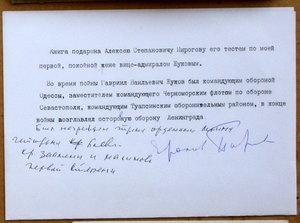 Книга подарена Алексею Степановичу Пирогову его тестем по моей
первой, покойной жене вице-адмиралом Жуковым.
Во время войны Гавриил Васильевич Жуков был командующим обороной
Одессы, заместителем командующего Черноморским флотом по обороне
Севастополя, командующим Туапсинским оборонительным районом, в конце
войны возглавлял оборону Ленинграда.
Был награжден тремя орденами Ленина
кр.
и Нахимова
первой степени